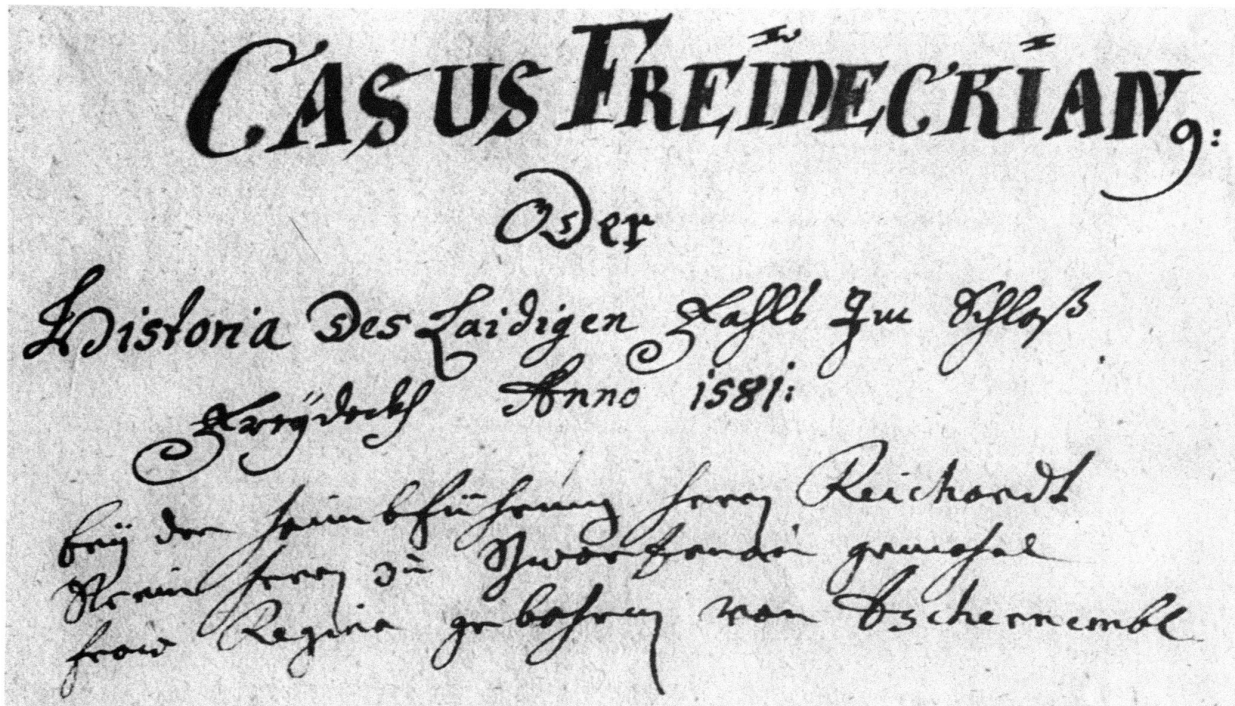 CASUS FREIDECKIAN9:
Oder
Historia Des Laidigen Fahls Im Schloß
Freÿdeckh Anno 1581:
beÿ der heimbführung herrn Reichardt
Strein herrn zu Schwartzenau gemahel
fraw Regina gebohrn von Tschernembl